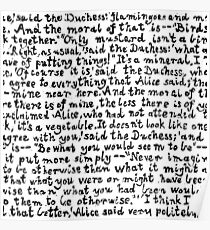 said the Duchess: flamingoes and m
e. And the moral of that is--"Birds
k together." "Only mustard isn't a bird
"Right, as usual," said the Duchess: "what a
ave of putting things!" "It's a mineral, I
"Of course it is," said the Duchess, who
agree to everything that Alice said; the
-mine near here. And the moral of
re there is of mine, the less there is of y
exclaimed Alice, who had not attended
k, "it's a vegetable. It doesn't look like one
gree with you," said the Duchess; "and
is--"Be what you would seem to be"--
it put more simply--"Never imagin
to be otherwise than what it might
that what you were or might have bee
wise than what you had been woul
o them to be otherwise."" "I think I
that better," Alice said very politely,